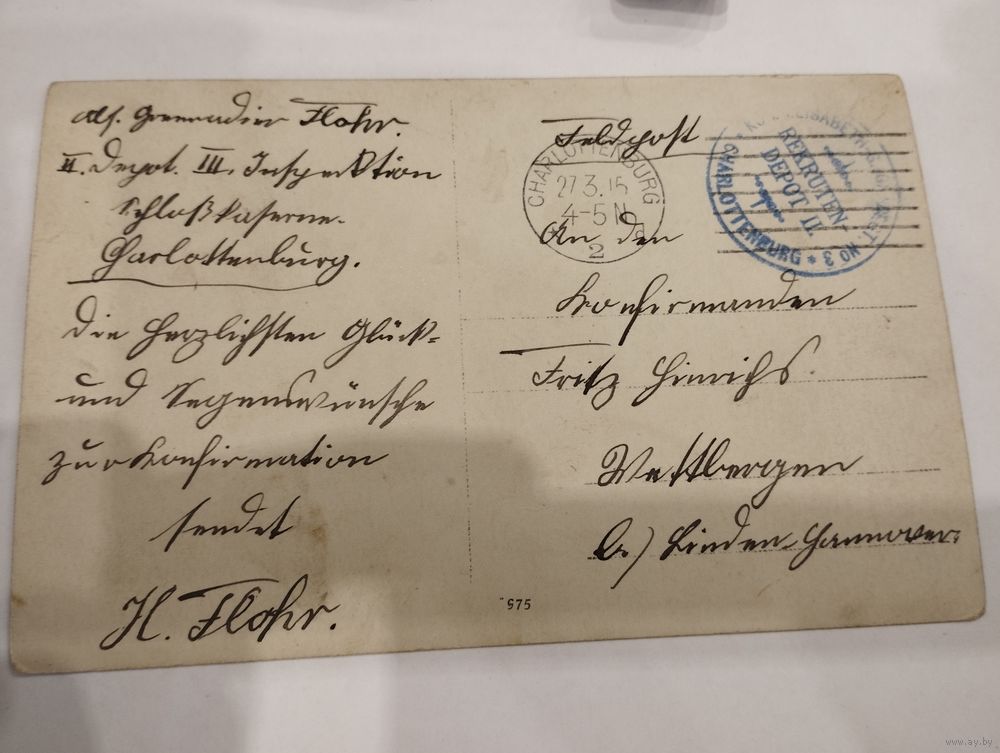 Abs. Grenadier Flohr.
II. Depot. III. Inspektion
Schloßkaserne.
Charlottenburg.
Die herzlichsten Glück-
und Segenswünsche
zur Konfirmation
sendet
H. Flohr.
Feldpost
CHARLOTTENBURG
27.3.15
4-5 N
2
REKRUTEN-
DEPOT II
CHARLOTTENBURG * 3
An den
Konfirmanden
Fritz Hinrichs.
Wettbergen
b./ Linden-Hannover.
975
www.ay.by